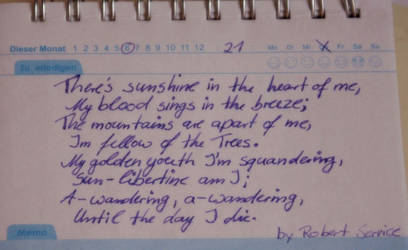 Dieser Monat 1 2 3 4 5 6 7 8 9 10 11 12 21 Mo Di Mi Do Fr Sa So
Zu erledigen
There's sunshine in the heart of me,
My blood sings in the breeze;
The mountains are apart of me,
I'm fellow of the Trees.
My golden youth I'm squandering,
Sun-libertine am I;
A-wandering, a-wandering,
Until the day I die.
Memo
by Robert Service